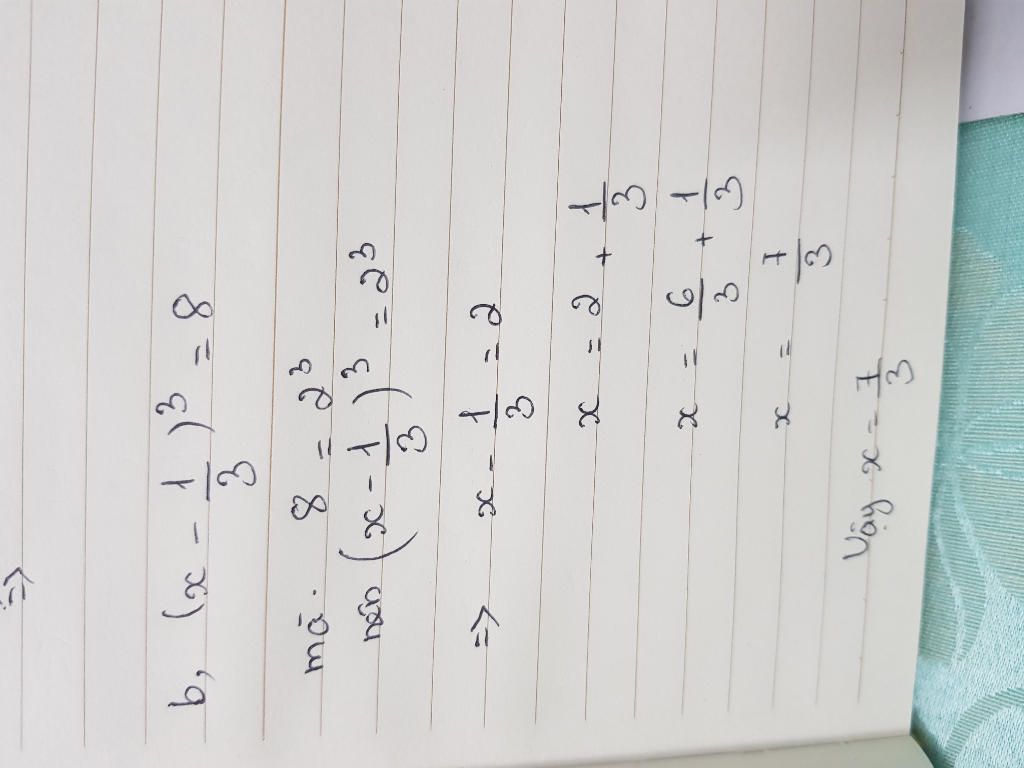 =>
b, (x - 1/3)³ = 8
mà 8 = 2³
nên (x - 1/3)³ = 2³
=> x - 1/3 = 2
x = 2 + 1/3
x = 6/3 + 1/3
x = 7/3
Vậy x = 7/3